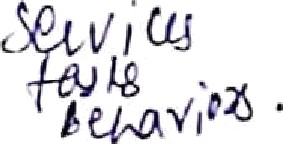 services
tests
behaviors.